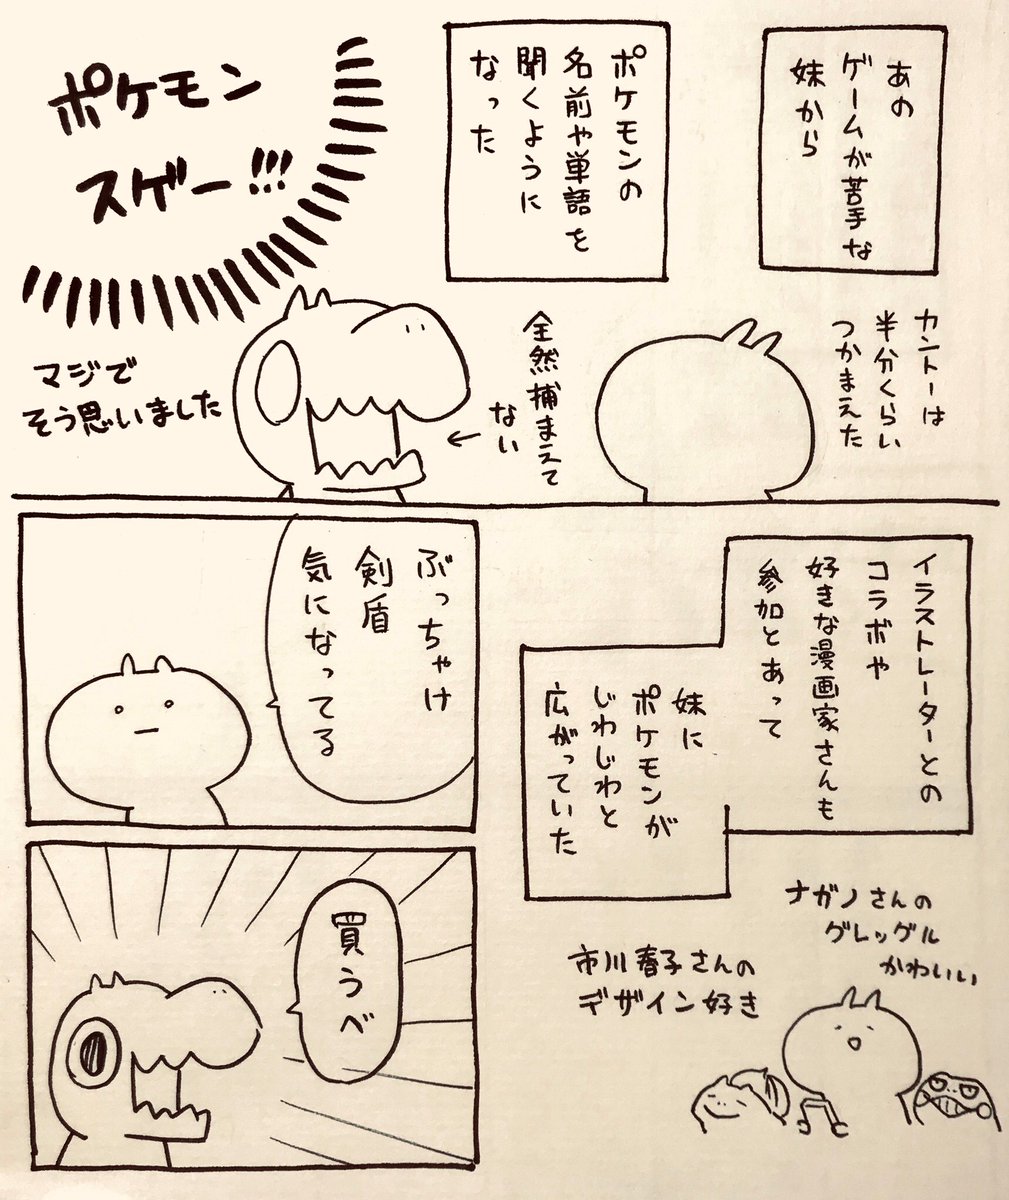 あの
ゲームが苦手な
妹から
ポケモンの
名前や単語を
聞くように
なった
カントーは
半分くらい
つかまえた
全然捕まえて
ない
ポケモン
スゲー!!!
マジで
そう思いました
イラストレーターとの
コラボや
好きな漫画家さんも
参加とあって
妹に
ポケモンが
じわじわと
広がっていた
ナガノさんの
グレッグル
かわいい
市川春子さんの
デザイン好き
ぶっちゃけ
剣盾
気になってる
買うべ